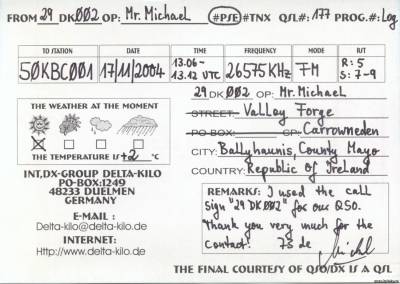 FROM 29 DKØØ2 OP: Mr. Michael #PSE #TNX QSL#: 177 PROG.#: Log
TO STATION DATE TIME FREQUENCY MODE R/T
50KBC001 17/11/2004 13.06 - 13.12 UTC 26575 KHz FM R: 5 S: 7-9
29 DK ØØ2 OP: Mr. Michael
THE WEATHER AT THE MOMENT
STREET: Valley Forge
PO-BOX: CP: Carrowneden
CITY: Ballyhaunis, County Mayo
THE TEMPERATURE IS +2 °C
COUNTRY: Republic of Ireland
INT,DX-GROUP DELTA-KILO
PO-BOX:1249
48233 DUELMEN
GERMANY
E-MAIL :
Delta-kilo@delta-kilo.de
INTERNET:
Http://www.delta-kilo.de
REMARKS: I used the call
sign "29 DKØØ2" for our QSO.
Thank you very much for the
contact! 73 de Michael
THE FINAL COURTESY OF QSO/DX IS A QSL